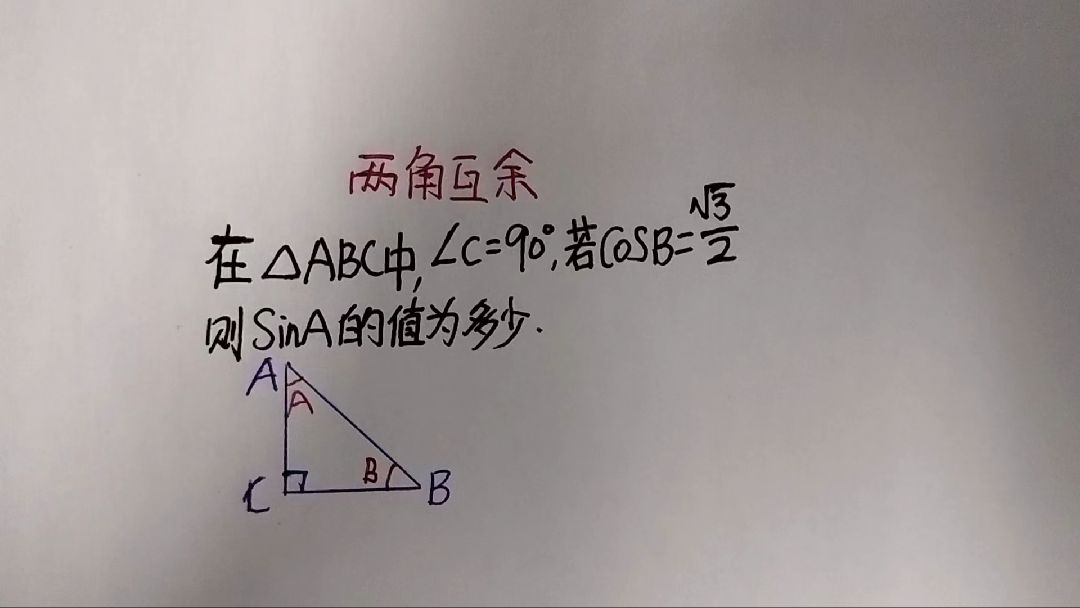 两角互余
在△ABC中,∠C=90°,若cosB=√3/2
则sinA的值为多少.
A
A
B
C
B